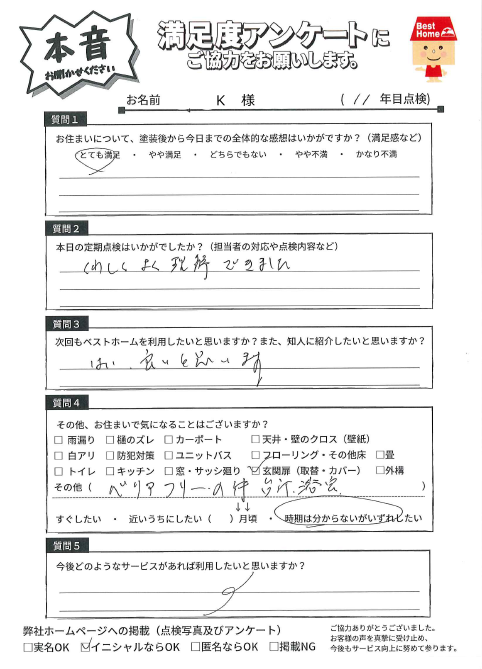 本音
お聞かせください
満足度アンケートに
ご協力をお願いします。
Best Home
お名前 K 様 ( 11 年目点検)
質問1
お住まいについて、塗装後から今日までの全体的な感想はいかがですか?(満足感など)
とても満足 ・ やや満足 ・ どちらでもない ・ やや不満 ・ かなり不満
質問2
本日の定期点検はいかがでしたか?(担当者の対応や点検内容など)
くわしくよく理解できました
質問3
次回もベストホームを利用したいと思いますか?また、知人に紹介したいと思いますか?
はい、良いと思います
質問4
その他、お住まいで気になることはございますか?
□雨漏り □樋のズレ □カーポート □天井・壁のクロス(壁紙)
□白アリ □防犯対策 □ユニットバス □フローリング・その他床 □畳
□トイレ □キッチン □窓・サッシ廻り ☑玄関扉(取替・カバー) □外構
その他( バリアフリーの件 台所.浴室 )
↓↓
すぐしたい ・ 近いうちにしたい( )月頃 ・ 時期は分からないがいずれしたい
質問5
今後どのようなサービスがあれば利用したいと思いますか?
弊社ホームページへの掲載(点検写真及びアンケート)
□実名OK ☑イニシャルならOK □匿名ならOK □掲載NG
ご協力ありがとうございました。
お客様の声を真摯に受け止め、
今後もサービス向上に努めて参ります。